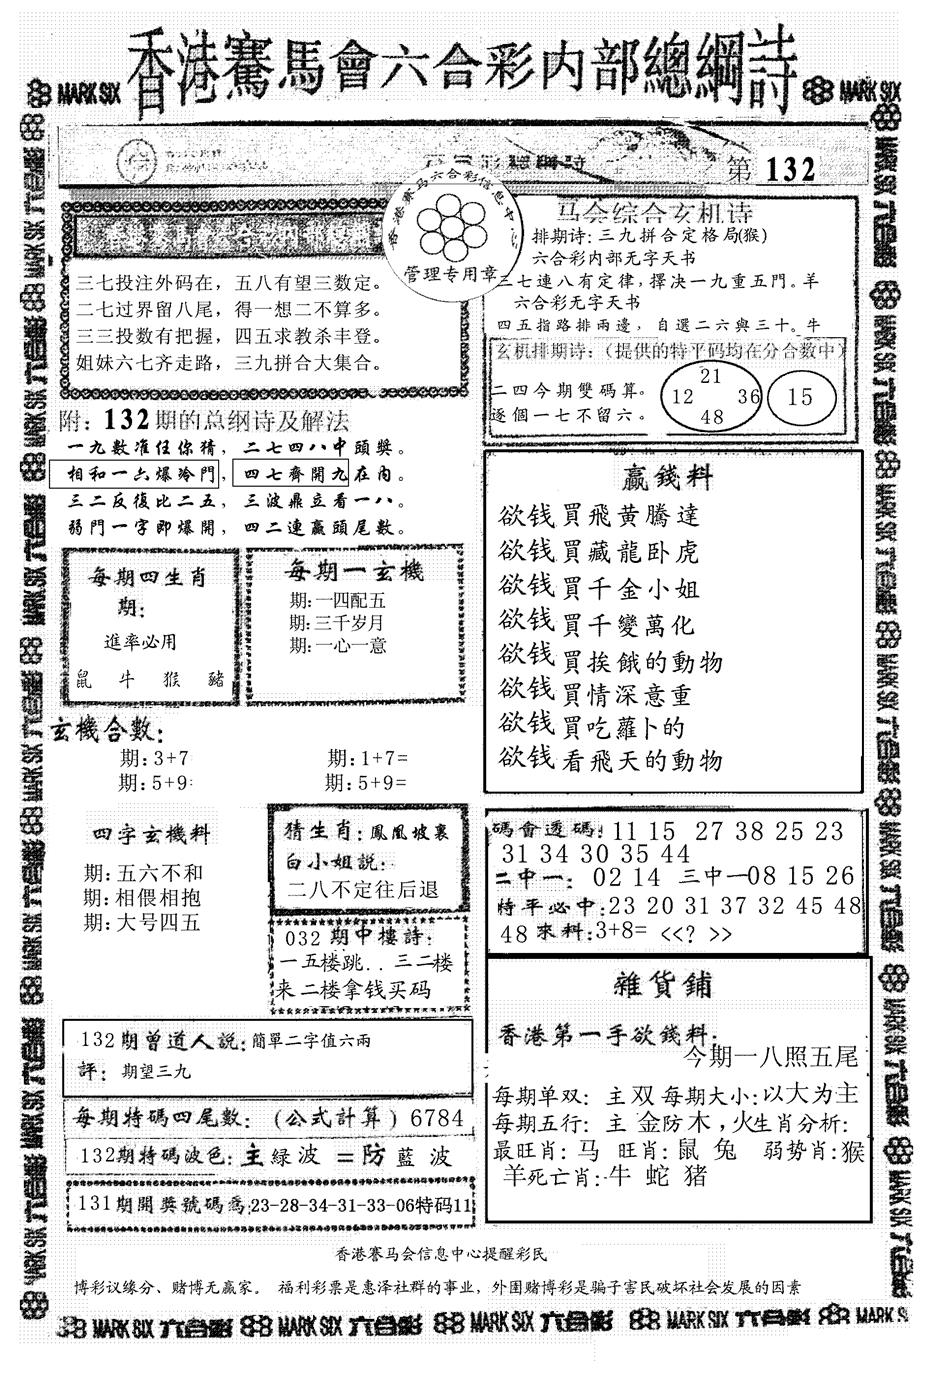 香港賽馬會六合彩内部總綱詩
MARK SIX
MARK SIX
第 132
香港赛马六合彩信息中心
管理专用章
三七投注外码在，五八有望三数定。
二七过界留八尾，得一想二不算多。
三三投数有把握，四五求教杀丰登。
姐妹六七齐走路，三九拼合大集合。
马会综合玄机诗
排期诗:三九拼合定格局(猴)
六合彩内部无字天书
三七連八有定律,擇决一九重五門。羊
六合彩无字天书
四五指路排兩邊，自選二六與三十。牛
玄机排期诗:（提供的特平码均在分合数中）
二四今期雙碼算。
逐個一七不留六。
21
12 36
48
15
附: 132期的总纲诗及解法
一九數准任你猜，二七四八中頭獎。
相和一六爆冷門，四七齊開九在內。
三二反復比二五，三波鼎立看一八。
弱門一字即爆開，四二連贏頭尾數。
每期四生肖
期:
進率必用
鼠 牛 猴 豬
每期一玄機
期:一四配五
期:三千岁月
期:一心一意
赢錢料
欲钱買飛黄騰達
欲钱買藏龍卧虎
欲钱買千金小姐
欲钱買千變萬化
欲钱買挨餓的動物
欲钱買情深意重
欲钱買吃蘿卜的
欲钱看飛天的動物
玄機合數:
期:3+7 期:1+7=
期:5+9: 期:5+9=
四字玄機料
期:五六不和
期:相偎相抱
期:大号四五
猜生肖:鳳凰坡裏
白小姐説:
二八不定往后退
032期中樓詩:
一五楼跳..三二楼
来二楼拿钱买码
碼會透碼:11 15 27 38 25 23
31 34 30 35 44
二中一: 02 14 三中一08 15 26
特平必中:23 20 31 37 32 45 48
48 來料:3+8= <<? >>
雜貨鋪
香港第一手欲錢料:
今期一八照五尾
每期单双: 主双 每期大小:以大为主
每期五行: 主 金防木，火生肖分析:
最旺肖:马 旺肖:鼠 兔 弱势肖:猴
羊死亡肖:牛 蛇 猪
132期曾道人説:簡單二字值六兩
評: 期望三九
每期特碼四尾數:（公式計算）6784
132期特碼波色:主緑波 =防藍波
131期開獎號碼爲:23-28-34-31-33-06特码11
香港赛马会信息中心提醒彩民
博彩议缘分、赌博无赢家。 福利彩票是惠泽社群的事业，外围赌博彩是骗子害民破坏社会发展的因素
MARK SIX 六合彩 MARK SIX 六合彩 MARK SIX 六合彩 MARK SIX 六合彩 MARK SIX